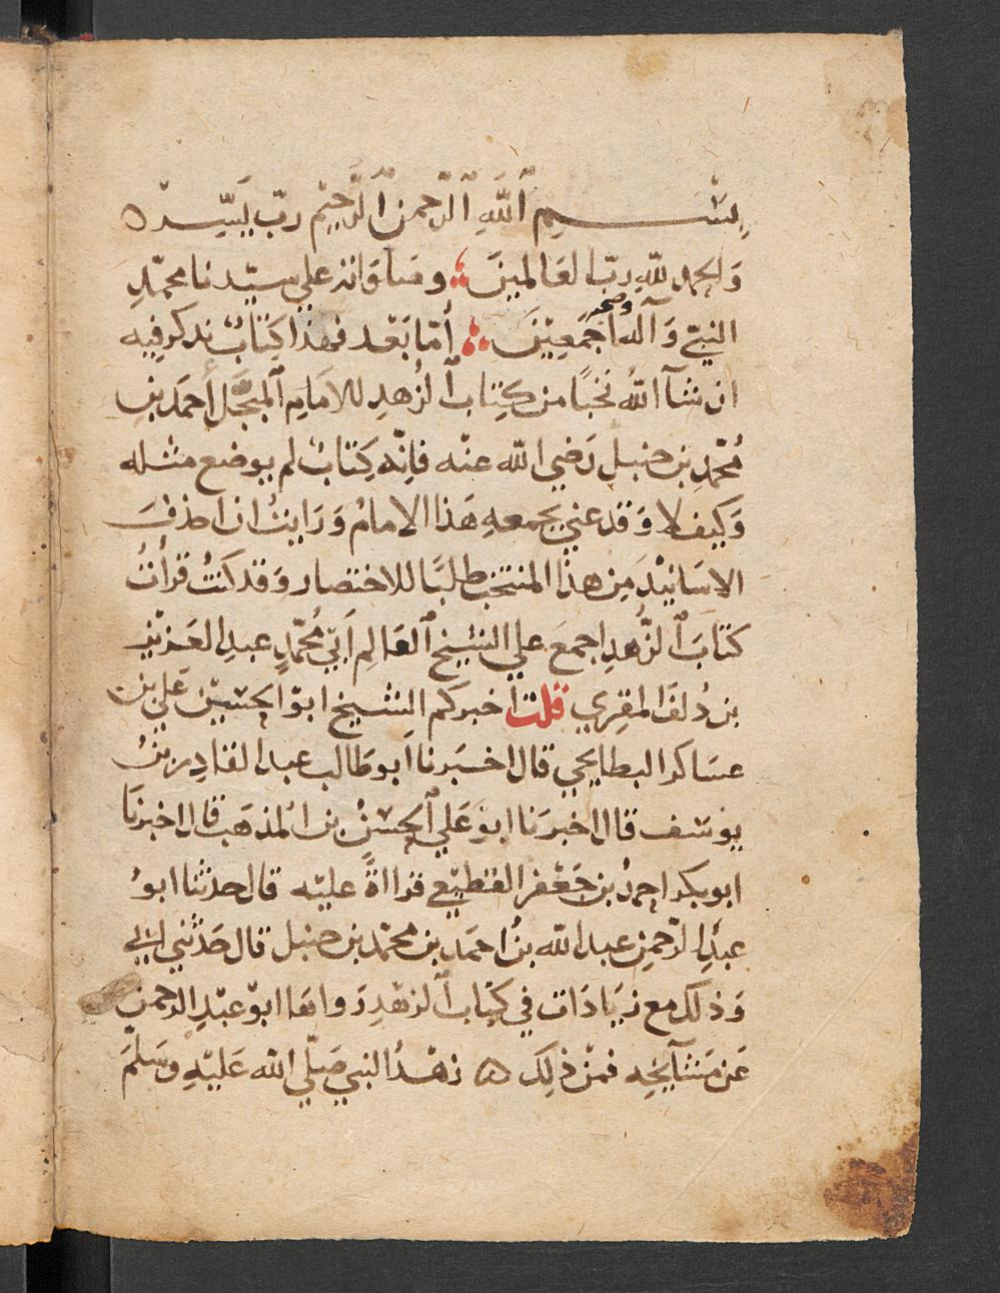 بِسْمِ ٱللَّهِ ٱلرَّحمن ٱلرَّحِيْم ربّ يَسِّرْ ه
وَالحمد للّهِ ربّ العَالمينَ وصَلوَاته علي سيّدنا محمّدٍ
النبيّ وَآله وصحبه أجْمَعِيْنَ أمّا بَعْد فهذا كِتَابٌ نذكر فِيه
ان شآ اللهُ نخبًا من كِتاب ٱلزُهدِ للامَامِ ٱلمبَجَّل أحمَد بنِ
مُحمّدِ بن حنبل رَضي الله عنْه فإنّه كِتَابٌ لم يوضع مثله
وَكيف لا وَقد عني بجمعهِ هَذا الامامُ وَرَايتُ ان احذفَ
الاسَانيْدَ مِن هذا المنتخب طلبًا للاختصار وَقد كنتُ قرأتُ
كتَابَ ٱلزُّهدِ اجمعَ علي الشيخ ٱلعَالِم أبي مُحمّدٍ عبدِ العَزيْزِ
بن دُلفَ المقرِي قلت اخبركم الشيخ ابوْ الحسَين عَلي بن
عسَاكر البطايحي قال اخبَرنا ابو طَالب عبد القادِر بنُ
يوسَف قال اخبرَنا ابوْ عَلي ٱلحسَنُ بن المذهَب قال اخبرنَا
ابو بكر احمدُ بن جَعْفر القَطيْعي قرااةً عليْه قال حدثنا ابوُ
عبدِ الرّحمنِ عبد اللّه بنُ احمَد بن محمّد بن حنبل قال حَدّثني ابي
وَذلك مع زيَادَات في كتاب ٱلزهْدِ رَواهَا ابوْ عبْدِ الرحمن
عَن مَشَآيخِه فمنْ ذلِك ه زهْدُ النبي صَلّي اللّه عَليْهِ وسَلّمَ